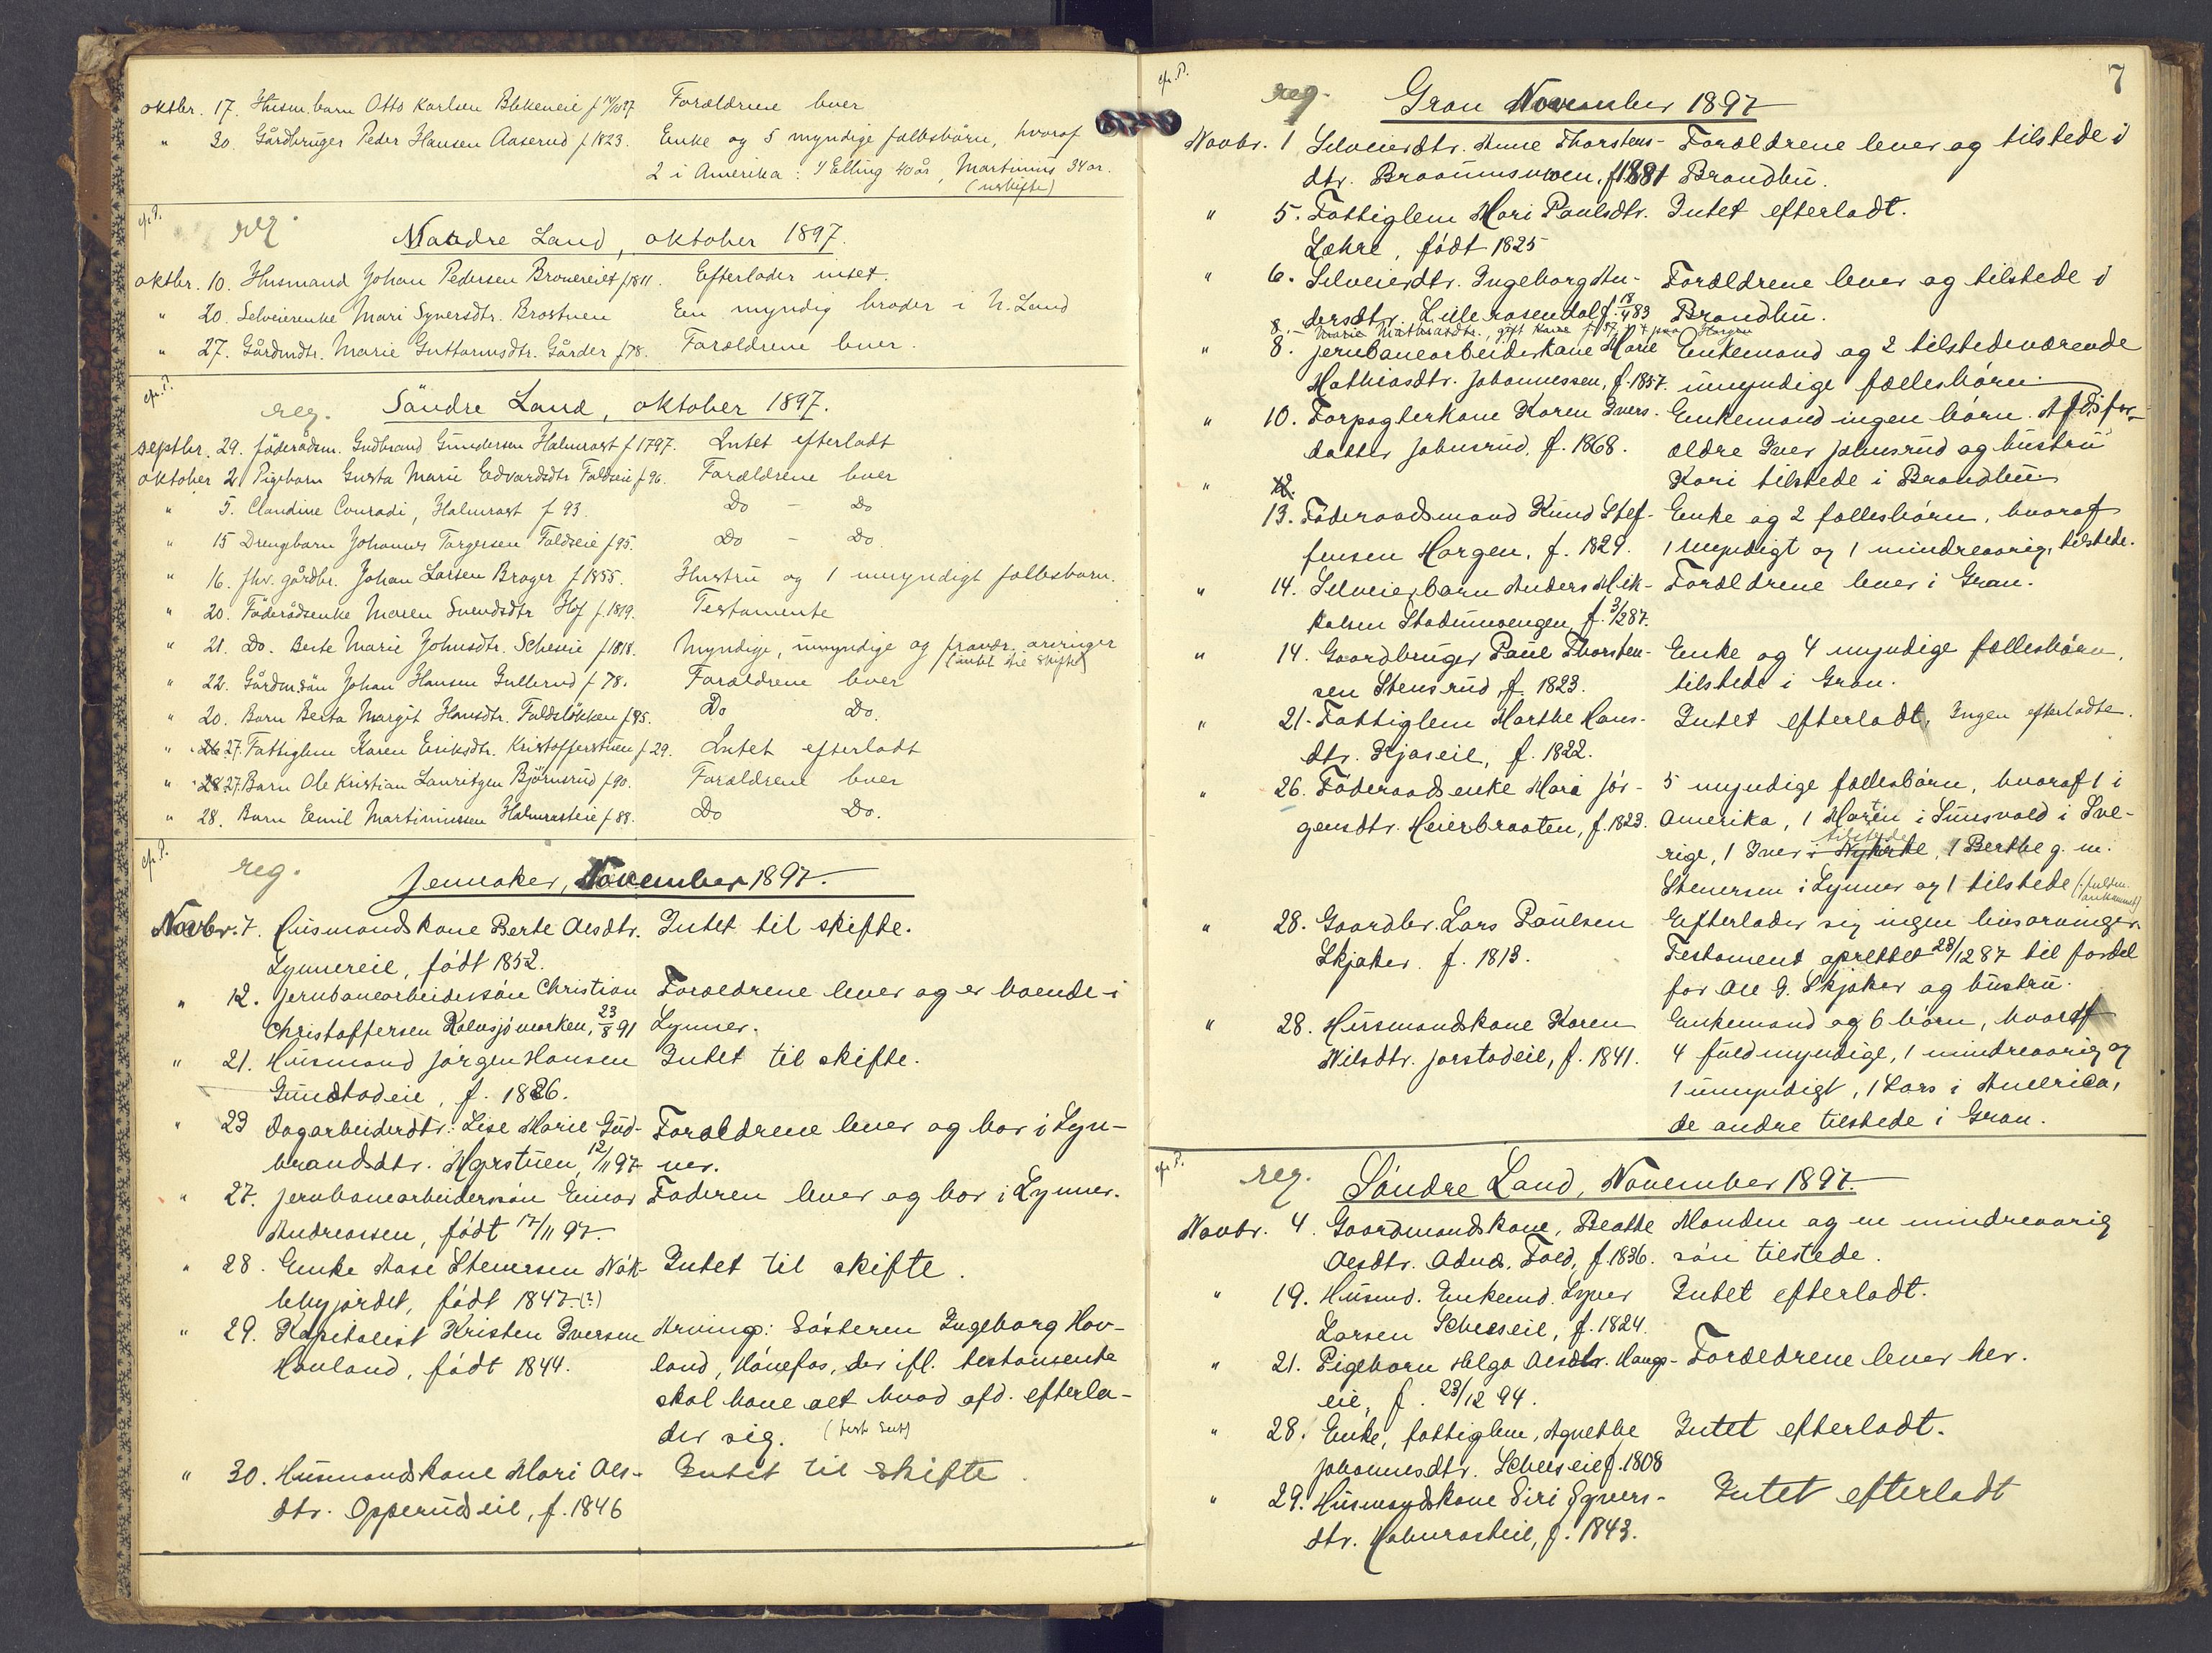 oktbr. 17. Husm. barn Otto Karlsen Blekeneie f 14/10 97 Forældrene lever
" 30. Gårdbruger Peder Hansen Aaserud f. 1823. Enke og 5 myndige fællesbørn, hvoraf
2 i Amerika: Elling 40 år, Martinus 34 år.
(uskifte)
cfr. P.
reg Nordre Land, oktober 1897.
oktbr. 10. Husmand Johan Pedersen Brovereiet f 1811. Efterlader intet.
" 20. Selveierenke Mari Syversdtr. Brostuen En myndig broder i N. Land
" 27. Gårdmdtr. Marie Guttormsdtr. Gårder f 78. Forældrene lever.
cfr. P.
reg. Söndre Land, oktober 1897.
septbr. 29. föderådsm. Gudbrand Gundersen Halmrast f 1797. Intet efterladt
oktober 2 Pigebarn Gusta Marie Edvardsdtr Faldseie f 96. Forældrene lever
" 5. Claudine Conradi, Halmrast f 93. Do - Do
" 15 Drengebarn Johannes Torgersen Faldseie f 95. Do - Do.
" 16. fhv. gårdbr. Johan Larsen Brager f 1855. Hustru og 1 umyndigt fællesbarn.
" 20. Föderådsenke Maren Svendsdtr Hof f. 1819. Testamente
" 21. Do. Berte Marie Johnsdtr. Scheseie f 1818. Myndige, umyndige og fravær. arvinger
(intet til skifte)
" 22. Gårdmsön Johan Hansen Gullerud f 78. Forældrene lever
" 20. Barn Berta Margit Hansdtr. Faldslökken f 95. Do Do.
" 26. 27. Fattiglem Karen Eriksdtr. Kristofferstuen f. 29. Intet efterladt
" 28 27. Barn Ole Kristian Lauritzen Björnerud f 90. Forældrene lever
" 28. Barn Emil Martiniussen Halmrasteie f 88. Do Do.
cfr. P.
reg. Jevnaker, November 1897.
Novbr. 7. Husmandskone Berte Olsdtr. Intet til skifte.
Lynnereie, født 1852.
" 12. Jernbanearbeidersøn Christian Forældrene lever og er boende i
Christoffersen Kalvsjømarken, 23/8 91 Lynner.
" 21. Husmand Jørgen Hansen Intet til skifte.
Gundstadeie, f. 1826.
" 23 Dagarbeiderdtr. Lise Marie Gud- Forældrene lever og bor i Lyn-
brandsdtr. Myrstuen, 12/11 97 ner.
" 27. Jernbanearbeidersøn Einar Faderen lever og bor i Lynner.
Andreassen, født 17/11 97.
" 28. Enke Aase Stenersen Nøk- Intet til skifte.
lebyjordet, født 1847 (?)
" 29. Kapitalist Kristen Iversen Arving: Søsteren Ingeborg Hov-
Hovland, født 1844. land, Hønefos, der ifl. testamente
skal have alt hvad afd. efterla-
der sig. (test. sendt)
" 30. Husmandskone Mari Ols- Intet til skifte.
dtr. Opperudseie, f. 1846
7
cfr. P.
reg. Gran November 1897
Novbr. 1 Selveierdtr. Anne Thorstens- Forældrene lever og tilstede i
dtr. f. 1881 Brandbu.
" 5. Fattiglem Mari Paulsdtr. Intet efterladt.
Læhre, født 1825
" 6. Selveierdtr. Ingeborg An- Forældrene lever og tilstede i
dersdtr. Lille rosendal f. 18/4 83 Brandbu.
8. - Marie Mathiasdtr. gift Kone f 57,
" 8. Jernbanearbeiderkone Marie Enkemand og 2 tilstedeværende
Mathiasdtr. Johannessen, f. 1857. umyndige fællesbørn.
" 10. Forpagterkone Karen Ivers- Enkemand ingen børn. Afds for-
datter Johnsrud, f. 1868. ældre Iver Johnsrud og hustru
" 12. Kari tilstede i Brandbu
13. Føderaadsmand Knud Stef- Enke og 2 fællesbørn, hvoraf
fensen Horgen, f. 1829. 1 myndigt og 1 mindreaarig, tilstede.
" 14. Selveierbarn Anders Mik- Forældrene lever i Gran.
kelsen Stadumsengen, f. 3/12 87.
" 14. Gaardbruger Paul Thorsten- Enke og 4 myndige fællesbørn,
sen Stensrud, f. 1823. tilstede i Gran.
" 21. Fattiglem Marthe Hans- Intet efterladt, Ingen efterladte.
dtr. Hjaseie, f. 1822.
" 26. Føderaadsenke Mari Jør- 5 myndige fællesbørn, hvoraf 1 i
gensdtr. Heierbraaten, f. 1823. Amerika, 1 Martin i Sunsvald i Sve-
tilstede
rige, 1 Iver i Nykirke, 1 Berthe g. m.
Stenersen i Lynner og 1 tilstede
" 28. Gaardbr. Lars Paulsen Efterlader sig ingen livsarvinger.
Skjaker. f. 1813. Testament oprettet 28/12 87 til fordel
for Ole G. Skjaker og hustru.
" 28. Husmandskone Karen Enkemand og 6 børn, hvoraf
Nilsdtr. Jorstadeie, f. 1841. 4 fuldmyndige, 1 mindreaarig og
1 umyndigt, 1 Lars i America,
de andre tilstede i Gran.
cfr. P.
reg. Søndre Land, November 1897.
Novbr. 4. Gaardmandskone, Beathe Manden og en mindreaarig
Olsdtr. Odnæs, Fald, f. 1836. søn tilstede.
" 19. Husmd. Enkemd. Syver Intet efterladt.
Larsen Scheeseie, f. 1824.
" 21. Pigebarn Helga Olsdtr. Haugs- Forældrene lever her.
eie, f. 23/12 94.
" 28. Enke, fattiglem, Agnethe Intet efterladt.
Johannesdtr. Scheeseie f. 1808
" 29. Husmandskone Siri Syvers- Intet efterladt
dtr. Halmrasteie, f. 1843.